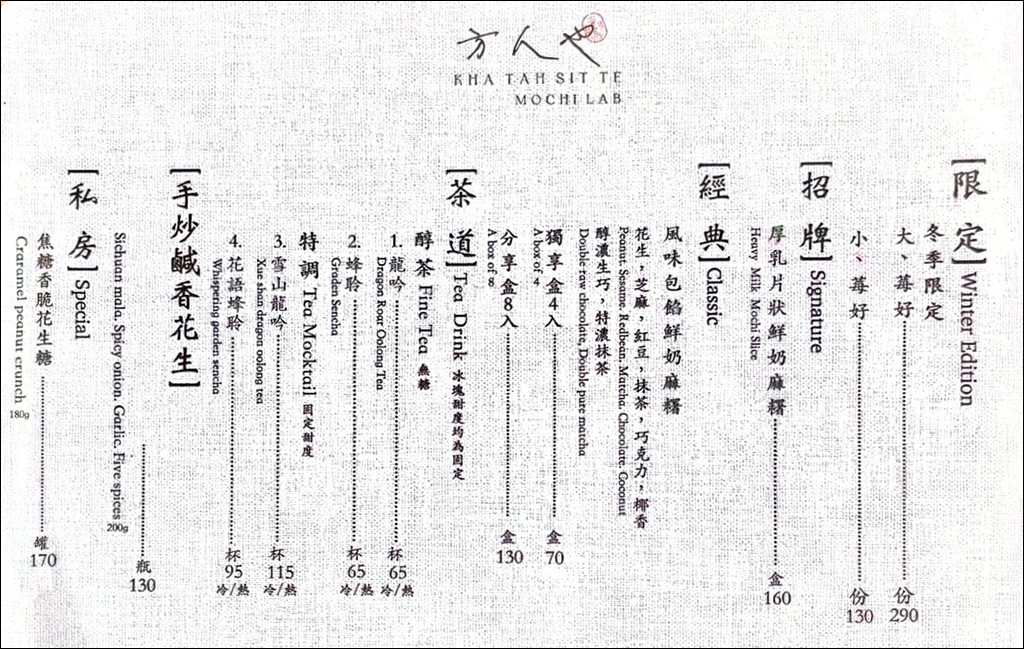 方人也
KHA TAH SIT TE
MOCHI LAB
[限定] Winter Edition
冬季限定
大、莓好 份 290
小、莓好 份 130
[招牌] Signature
厚乳片狀鮮奶麻糬 盒 160
Heavy Milk Mochi Slice
[經典] Classic
風味包餡鮮奶麻糬
花生，芝麻，紅豆，抹茶，巧克力，椰香
Peanut. Sesame. Redbean. Matcha. Chocolate. Coconut
醇濃生巧，特濃抹茶
Double raw chocolate, Double pure matcha
獨享盒4入 盒 70
A box of 4
分享盒8入 盒 130
A box of 8
[茶道] Tea Drink 冰塊甜度均為固定
醇茶 Fine Tea 無糖
1. 龍吟 杯 65 冷/熱
Dragon Roar Oolong Tea
2. 蜂聆 杯 65 冷/熱
Graden Sencha
特調 Tea Mocktail 固定甜度
3. 雪山龍吟 杯 115 冷/熱
Xue shan dragon oolong tea
4. 花語蜂聆 杯 95 冷/熱
Whispering garden sencha
[手炒鹹香花生]
瓶 130
Sichuan mala. Spicy onion. Garlic. Five spices 200g
[私房] Special
焦糖香脆花生糖 罐 170
Craramel peanut crunch 180g